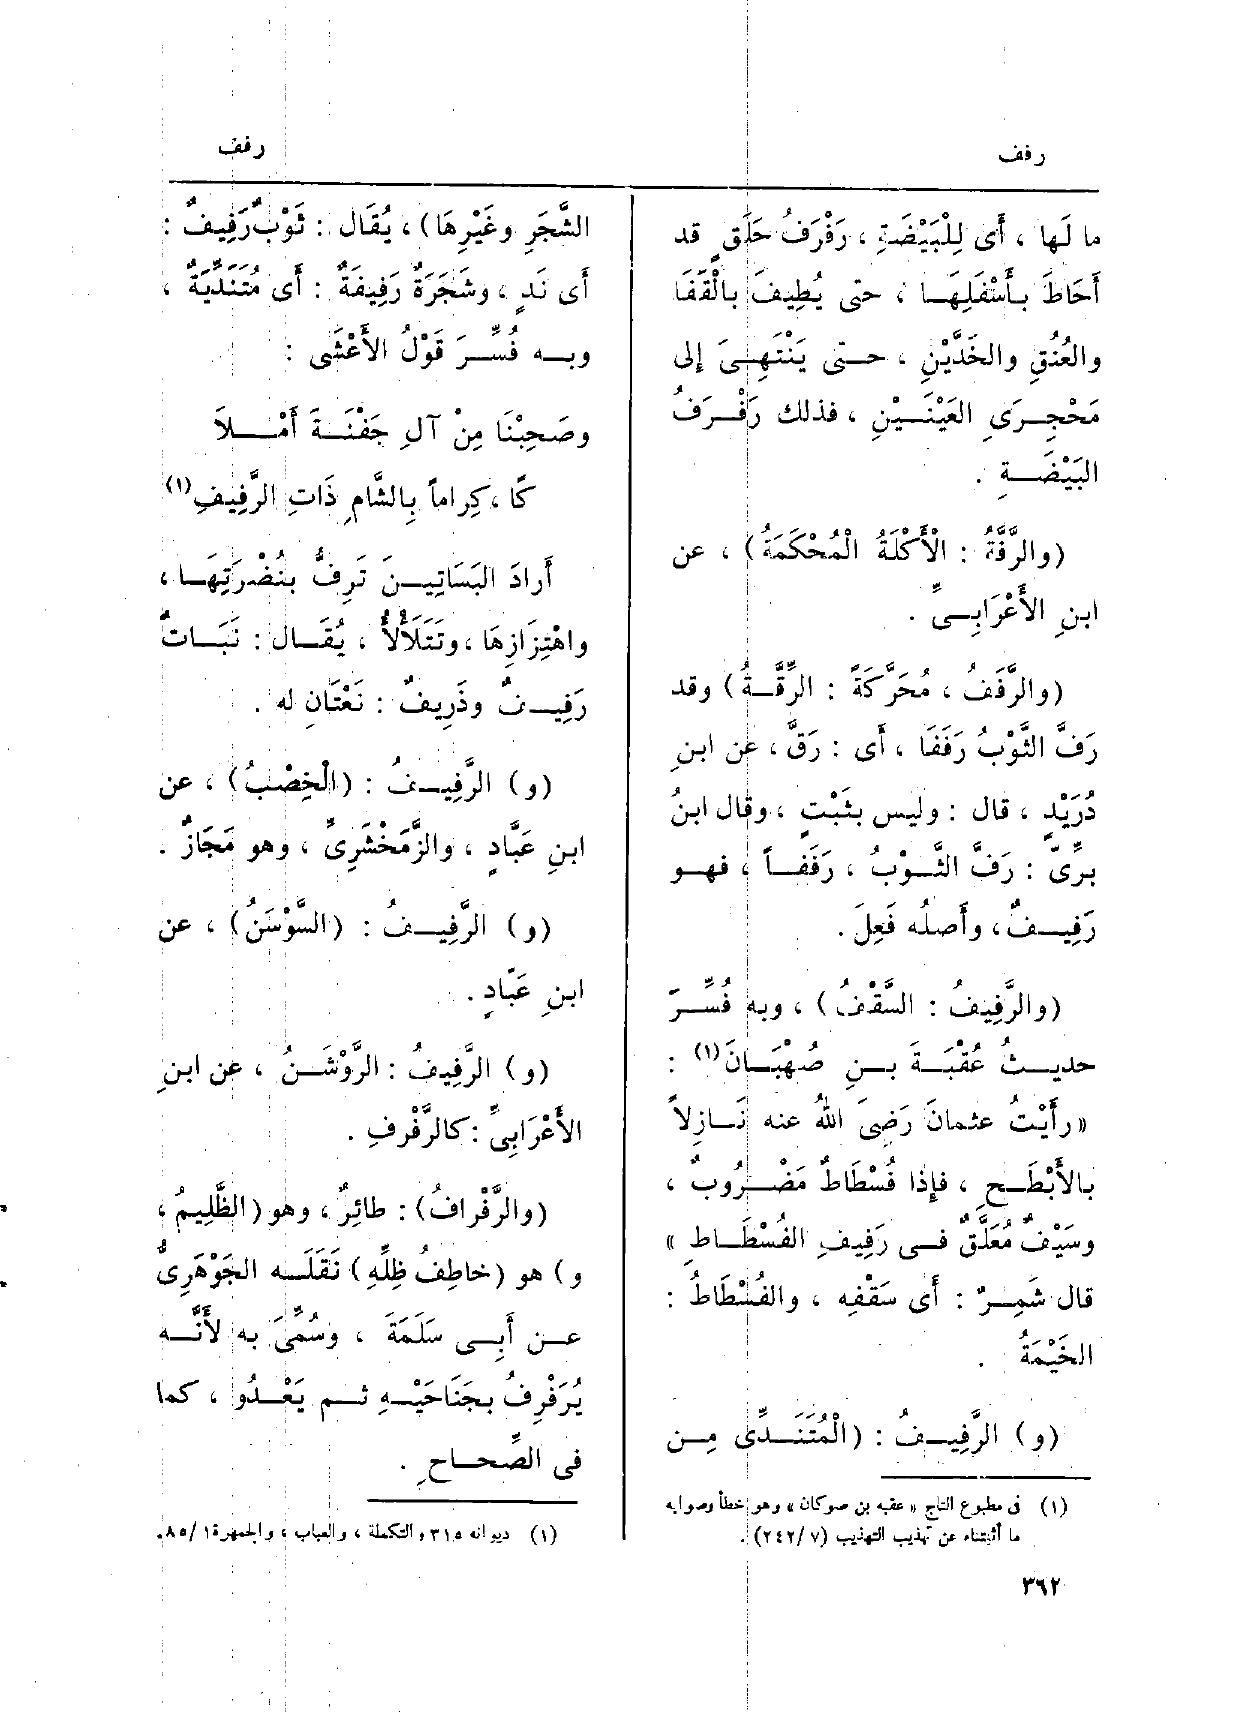 رفف
رفف
ما لَها ، أَى لِلْبَيْضَةِ ، رَفْرَفُ حَلَقٍ قد
أَحَاطَ بِأَسْفَلِهَا ، حتى يُطِيفَ بالْقَفَا
والعُنُقِ والخَدَّيْنِ ، حتى يَنْتَهِىَ إِلى
مَحْجِرَىِ العَيْنَيْنِ ، فذلك رَفْرَفُ
البَيْضَةِ .
(والرَّفَّةُ : الْأَكْلَةُ الْمُحْكَمَةُ) ، عن
ابنِ الأَعْرَابِىِّ .
(والرَّفَفُ ، مُحَرَّكَةً : الرِّقَّةُ) وقد
رَفَّ الثَّوْبُ رَفَفَا ، أَى : رَقَّ ، عن ابنِ
دُرَيْدٍ ، قال : وليس بثَبْتٍ ، وقال ابنُ
برِّىّ : رَفَّ الثَّوْبُ ، رَفَفاً ، فهو
رَفِيفٌ، وأَصلُه فَعِلَ .
(والرَّفِيفُ : السَّقْفُ) ، وبه فُسِّرَ
حديثُ عُقْبَةَ بنِ صُهْبَانَ(١) :
« رأَيْتُ عثمانَ رَضِىَ اللهُ عنه نَازِلاً
بالأَبْطَحِ ، فإِذا فُسْطَاطٌ مَضْرُوبٌ ،
وسَيْفٌ مُعَلَّقٌ فى رَفِيفِ الفُسْطَاطِ »
قال شَمِرٌ : أَى سَقْفِه ، والفُسْطَاطُ :
الخَيْمَةُ .
(و) الرَّفِيفُ : (الْمُتَنَدِّى مِن
(١) فى مطبوع التاج « عقبه بن صوكان » وهو خطأ وصوابه
ما أثبتناه عن تهذيب التهذيب (٧ /٢٤٢) .
الشَّجَرِ وغَيْرِهَا) ، يُقَال : ثَوْبٌ رَفِيفٌ :
أَى نَدٍ ، وشَجَرَةٌ رَفِيفَةٌ : أَى مُتَنَدِّيَةٌ ،
وبه فُسِّرَ قَوْلُ الأَعْشَى :
وصَحِبْنَا مِنْ آلِ جَفْنَةَ أَمْلاَ
كًا ،كِراماً بِالشَّامِ ذَاتِ الرَّفِيفِ(١)
أَرادَ البَسَاتِينَ تَرِفُّ بنُضْرَتِهَا ،
واهْتِزَازِهَا ، وتَتَلَأْلَأُ ، يُقَال : نَبَاتٌ
رَفِيفٌ وذَرِيفٌ : نَعْتَانِ له .
(و) الرَّفِيفُ : (الْخِصْبُ) ، عن
ابنِ عَبَّادٍ ، والزَّمَخْشَرِىِّ ، وهو مَجَازٌ .
(و) الرَّفِيفُ : (السَّوْسَنُ) ، عن
ابنِ عَبّادٍ .
(و) الرَّفِيفُ : الرَّوْشَنُ ، عن ابنِ
الأَعْرَابِىِّ : كالرَّفْرفِ .
(والرَّفْرافُ) : طائِرٌ، وهو (الظَّلِيمُ ،
و) هو (خاطِفُ ظِلِّهِ) نَقَلَه الجَوْهَرِىُّ
عن أَبى سَلَمَةَ ، وسُمِّىَ به لأَنَّه
يُرَفْرِفُ بجَنَاحَيْهِ ثم يَعْدُو ، كما
فى الصِّحاحِ .
(١) ديوانه ٣١٥ والتكملة ، والعباب ، والجمهرة ١ /٨٥ .
٣٦٢